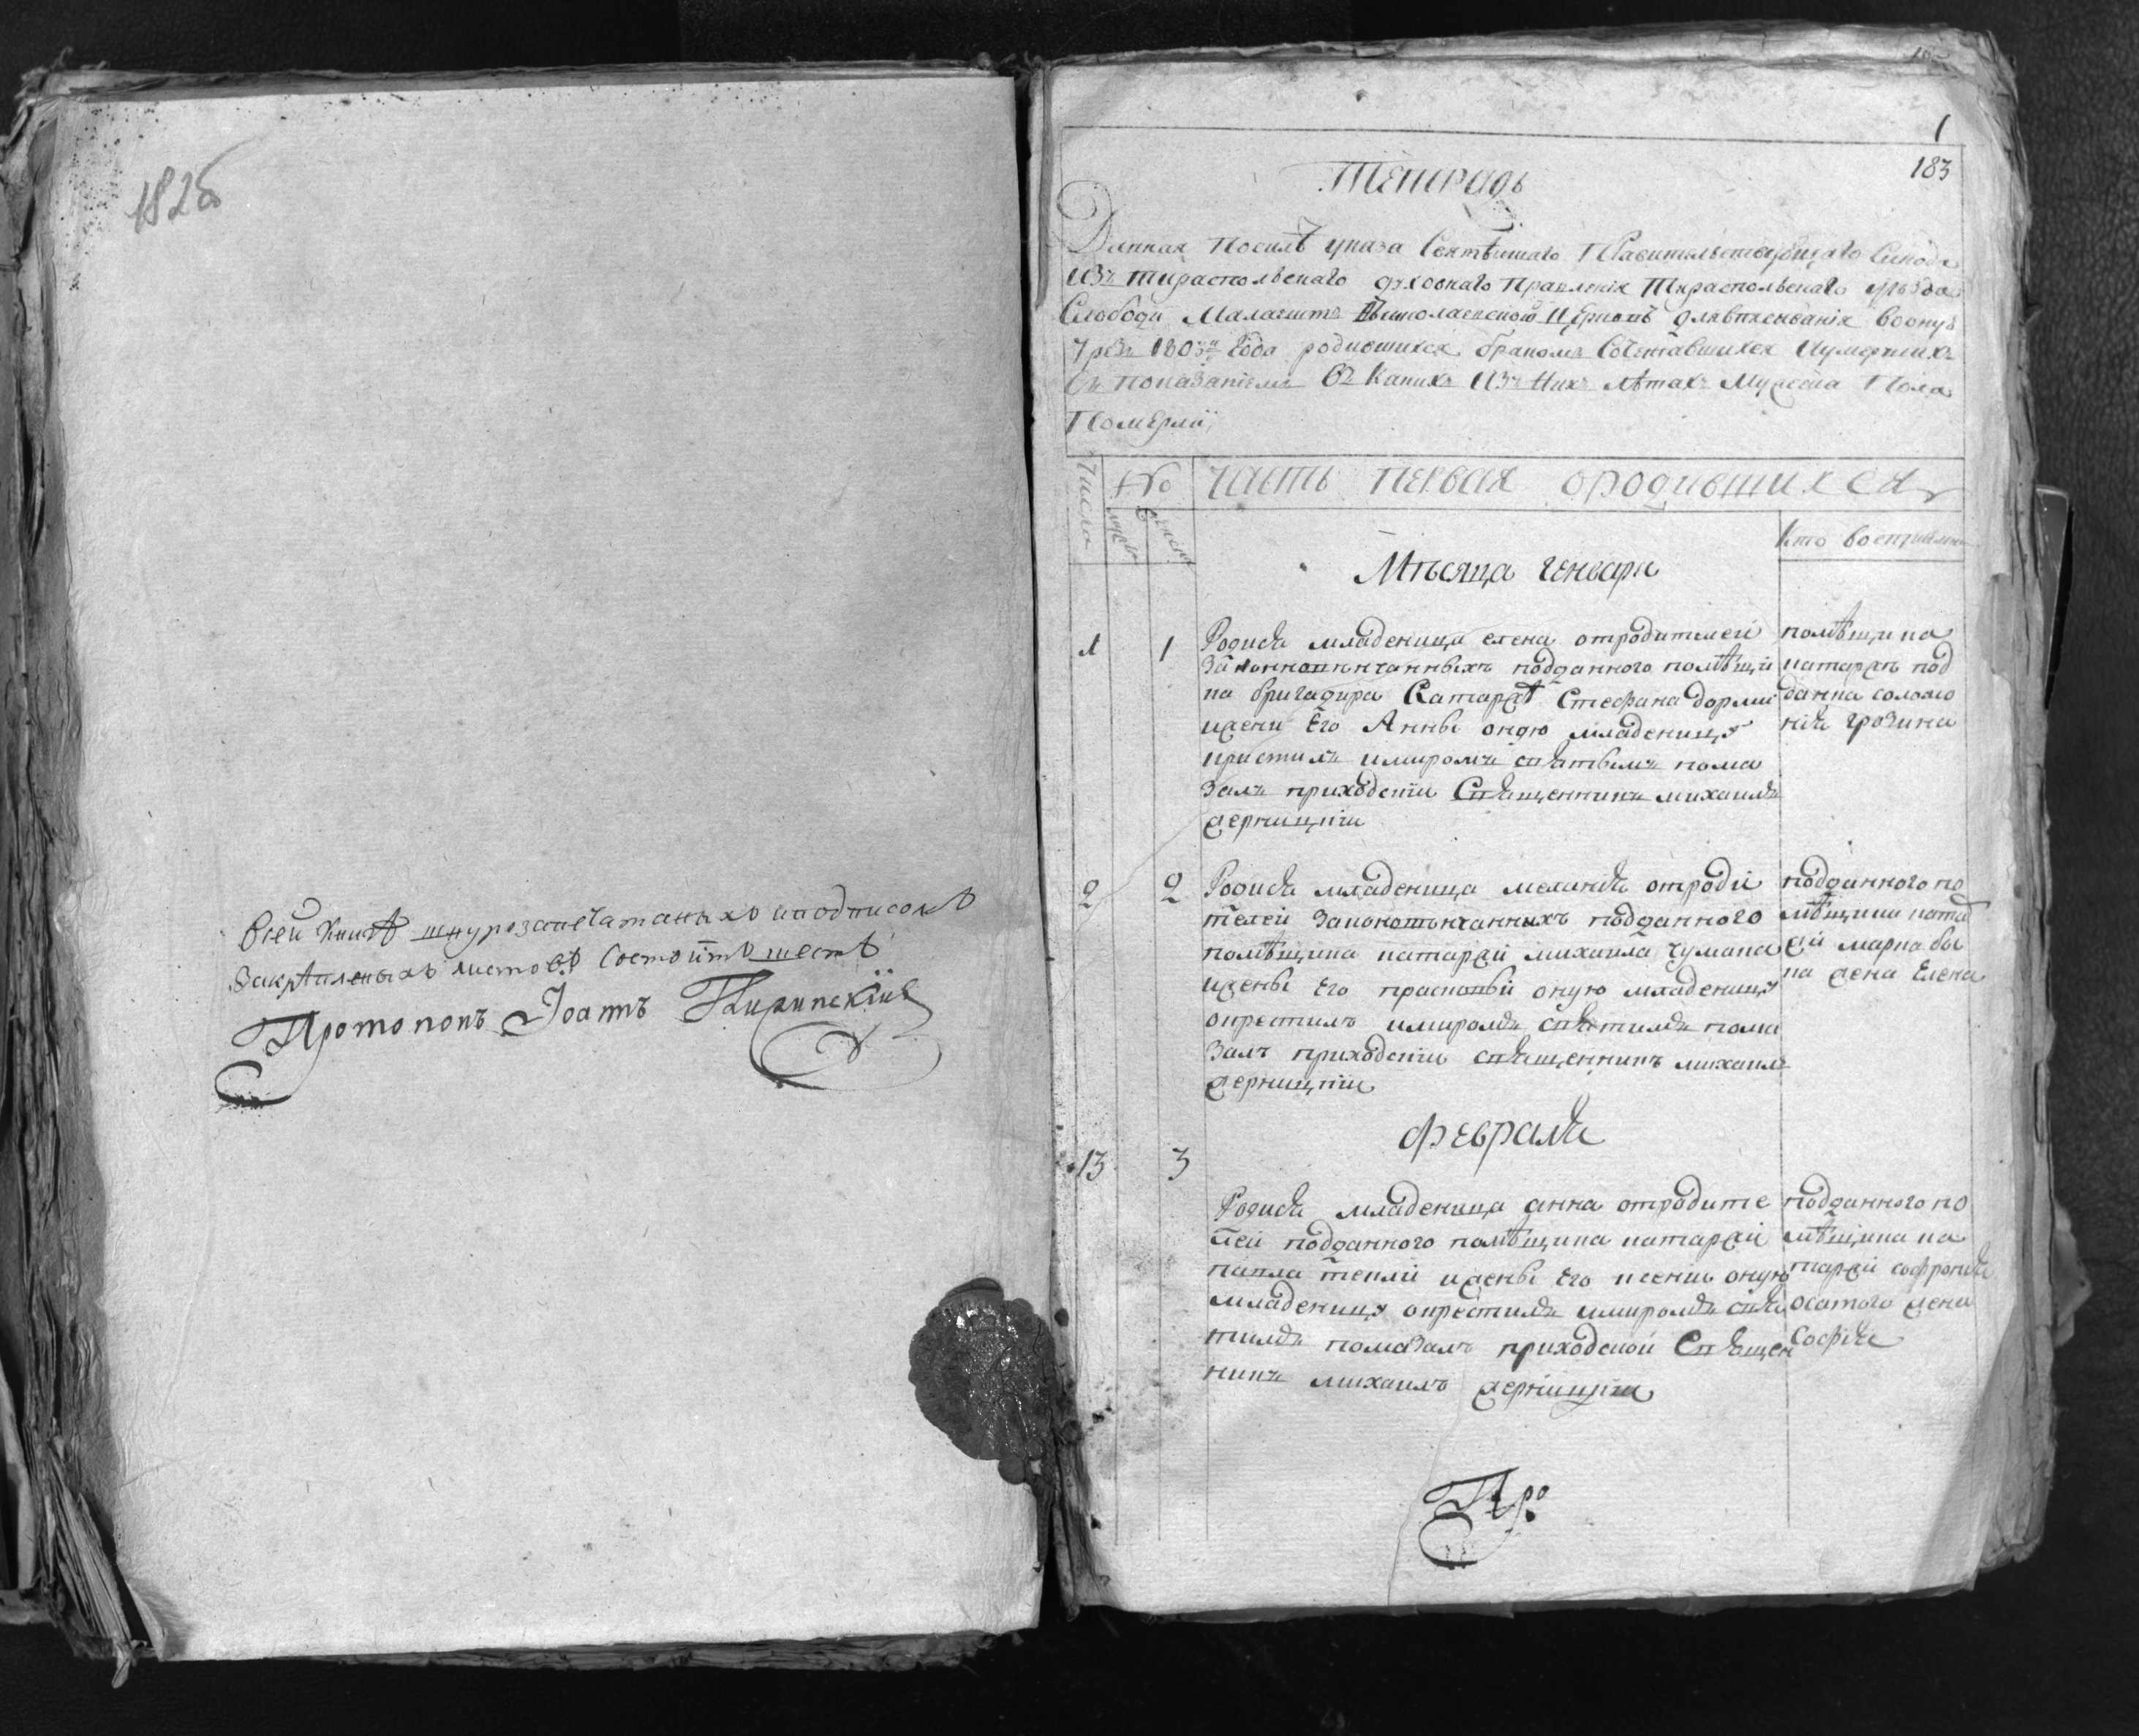 182б
Всей книгѣ шнурозапечатаныхъ иподписомъ
Закрѣпленыхъ листовъ Состоитъ шесть
Протопопъ Іоаннъ
1
183
Тетрадь
Данная Посилѣ указа Святѣйшаго Правительствующаго Синода
Изъ тираспольскаго духовнаго Правленія Тираспольскаго уѣзда
Слободи Малаешть Николаевской Церковѣ длявписыванія воону
Чрезъ 180 Года родившихся бракомъ Сочетавшихся Иумершихъ
Съ показаніемъ Въ Какихъ Изъ Нихъ Лѣтахъ Мужеска Пола
Померли
Числа
№
Часть первая ородившихся
муж
женск
Кто воспріемни
Мѣсяца генваря
1
1
Родися младеница елена отродителей
законновѣнчанныхъ подданного помѣщи
ка бригадира Катаржѣ Стефана
ижени Его Анны оную младеницу
кристилъ имиромъ святымъ пома
залъ приходскіи Священникъ михаилъ
помѣщика
катаржѣ под
данка соломо
нія грозина
2
2
Родися младеница меланія отроди
телей законовѣнчанныхъ подданного
помѣщика катаржи михаила чумака
ижены Его прасковѣи оную младеницу
окрестилъ имиромъ святимъ пома
залъ приходскіи священникъ михаилъ
подданного по
мѣщика ката
жи марка бы
ка жена Елена
Февраля
13
3
Родися младеница анна отродите
лей подданного помѣщика катаржи
павла ижены Его ксени оную
младеницу окрестилъ имиромъ свя
тимъ помазалъ приходской Священ
никъ михаилъ
подданного по
мѣщика ка
таржи софронія
жена
Софія
Про